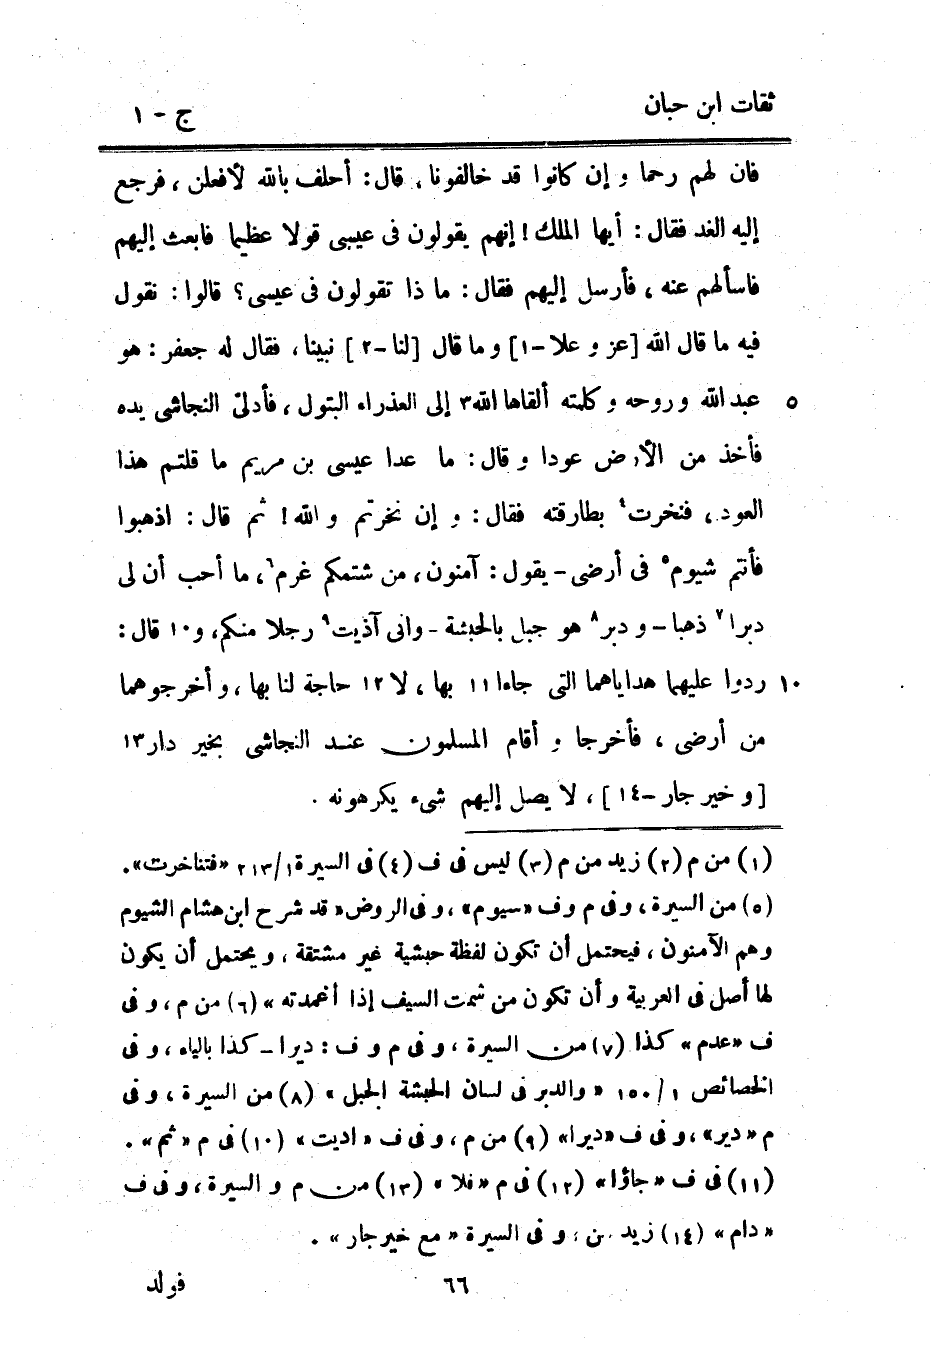 ثقات ابن حبان
ج - ١
فان لهم رحما و إن كانوا قد خالفونا ، قال : أحلف بالله لأفعلن ، فرجع
إليه الغد فقال : أيها الملك ! إنهم يقولون فى عيسى قولا عظيما فابعث إليهم
فاسألهم عنه ، فأرسل إليهم فقال : ما ذا تقولون فى عيسى ؟ قالوا : نقول
فيه ما قال الله [عز و علا -١] و ما قال [لنا -٢ ] نبينا ، فقال له جعفر : هو
٥ عبد الله و روحه و كلمته ألقاها الله٣ إلى العذراء البتول ، فأدلىّ النجاشى يده
فأخذ من الأرض عودا و قال : ما عدا عيسى بن مريم ما قلتم هذا
العود ، فنخرت٤ بطارقته فقال : و إن نخرتم و الله ! ثم قال : اذهبوا
فأنتم شيوم٥ فى أرضى - يقول : آمنون ، من شتمكم غرم٦ ، ما أحب أن لى
دبرا٧ ذهبا - و دبر٨ هو جبل بالحبشة - وانى آذيت٩ رجلا منكم ، و١٠ قال :
١٠ ردوا عليهما هداياهما التى جاءا١١ بها ، لا١٢ حاجة لنا بها ، و أخرجوهما
من أرضى ، فأخرجا و أقام المسلمون عند النجاشى بخير دار١٣
[و خير جار -١٤ ] ، لا يصل إليهم شىء يكرهونه .
(١) من م (٢) زيد من م (٣) ليس فى ف (٤) فى السيرة ١ / ٢١٣ «فتناخرت» .
(٥) من السيرة ، و فى م و ف «سيوم» ، و فى الروض « قد شرح ابن هشام الشيوم
وهم الآمنون ، فيحتمل أن تكون لفظة حبشية غير مشتقة ، و يحتمل أن يكون
لها أصل فى العربية و أن تكون من شمت السيف إذا أغمدته » (٦) من م ، و فى
ف «عدم» كذا (٧) من السيرة ، و فى م و ف : ديرا - كذا بالياء ، و فى
الخصائص ١ / ١٥٠ « والدبر فى لسان الحبشة الجبل » (٨) من السيرة ، و فى
م « دير» ، و فى ف «ديرا» (٩) من م ، و فى ف « اديت » (١٠) فى م « ثم » .
(١١) فى ف «جاؤا» (١٢) فى م «فلا » (١٣) من م و السيرة ، و فى ف
« دام » (١٤) زيد من ، و فى السيرة « مع خير جار » .
٦٦
فولد